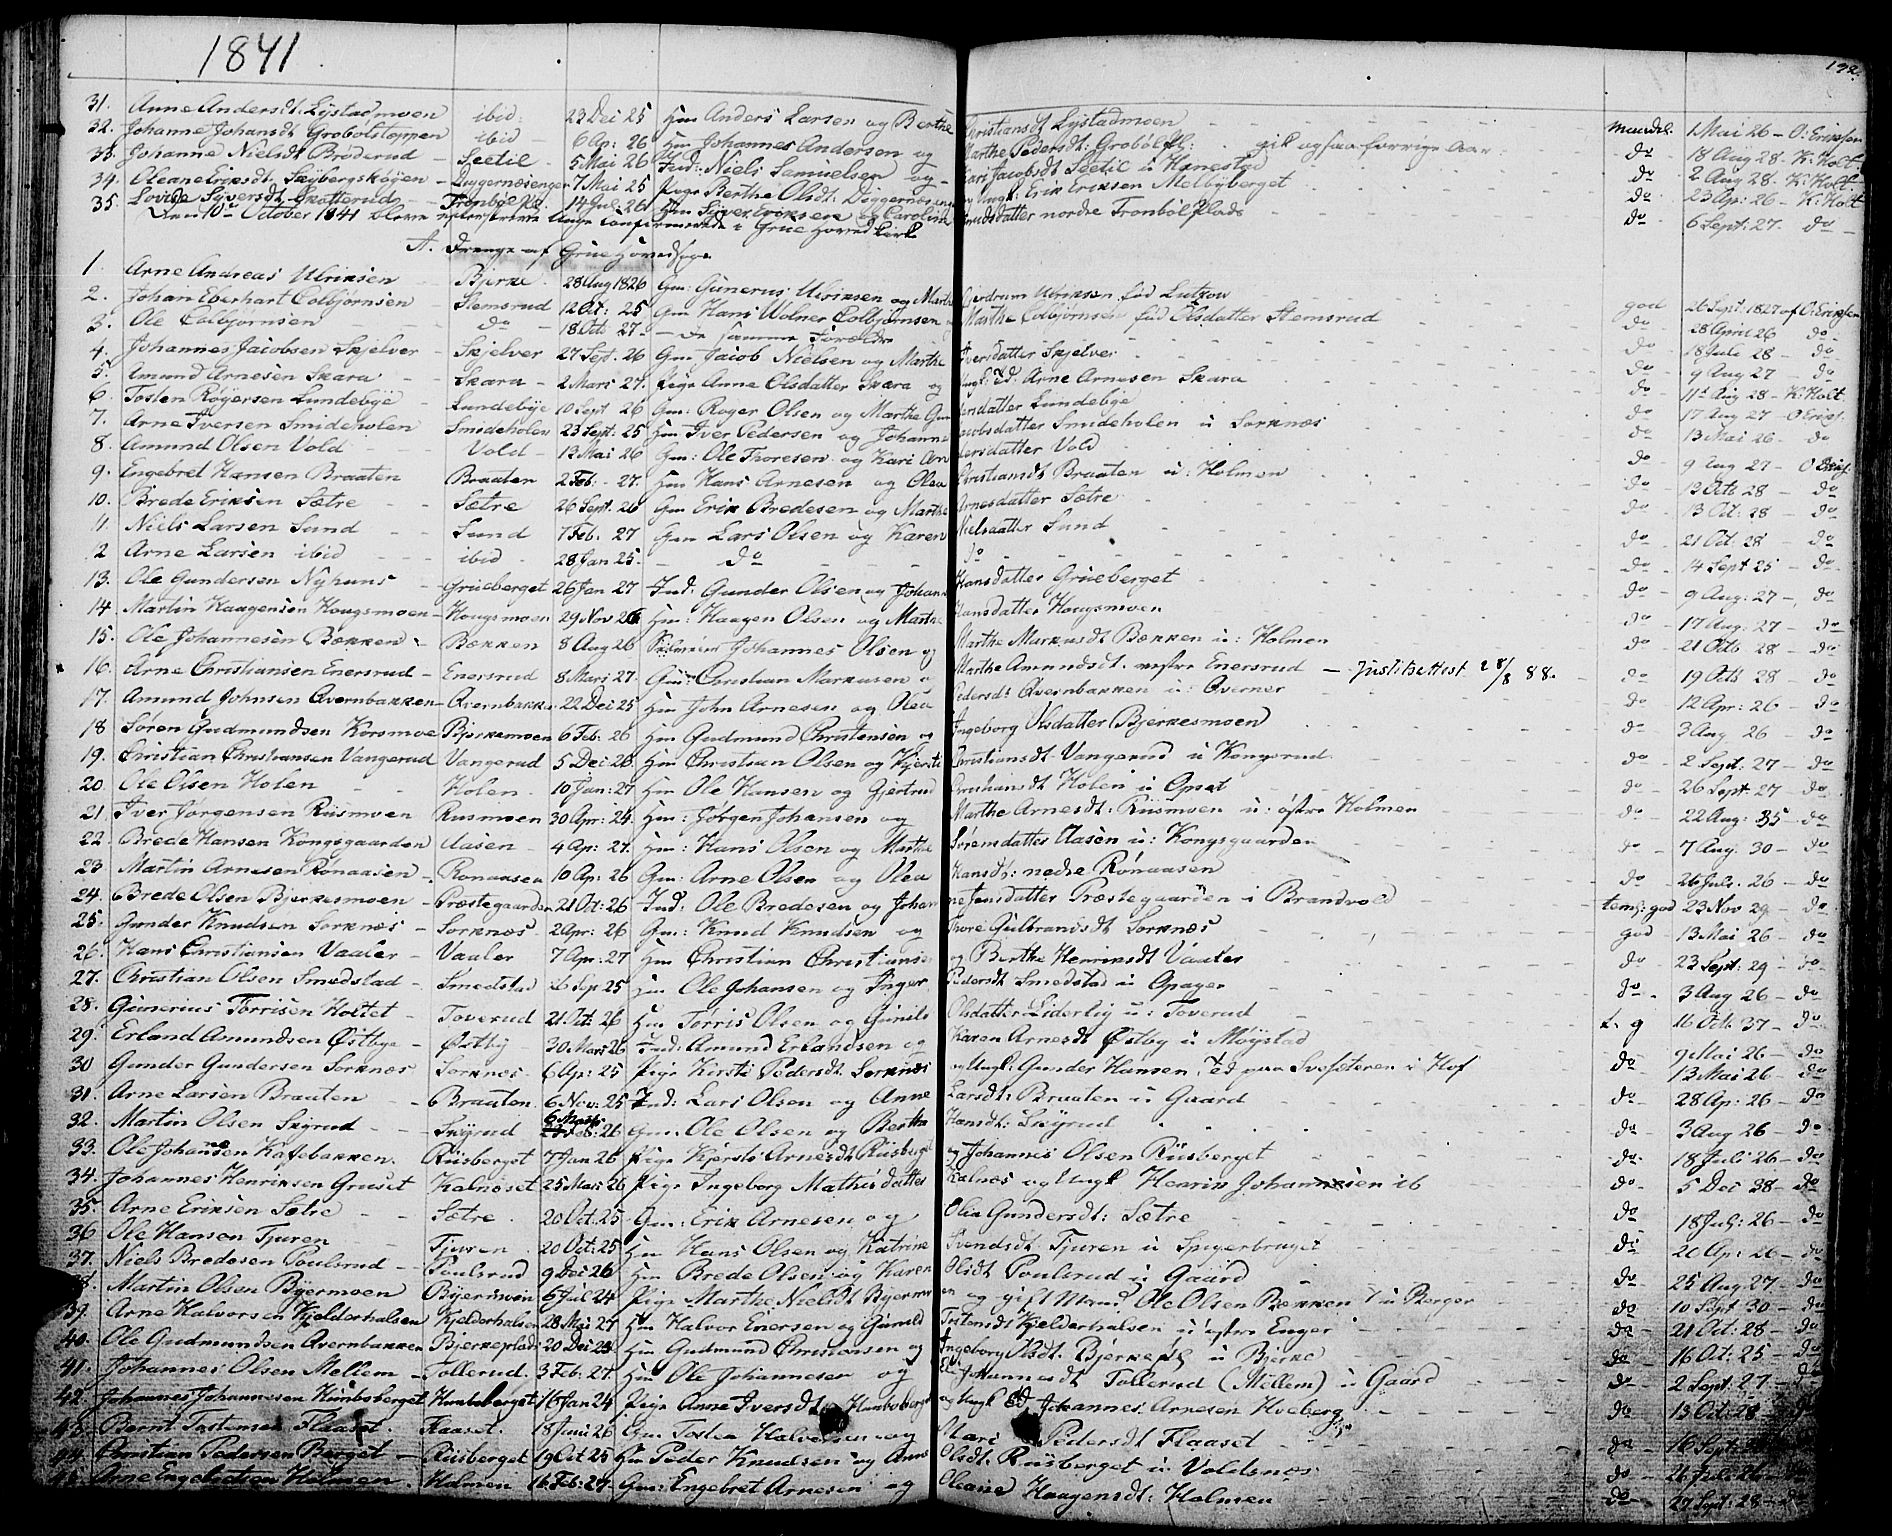 1841
192.
31. Anne Andersdt. Lystadmoen ibid: 23 Dei 25 Hm Anders Larsen og Berthe Christiansdt Lystadmoen maadel. 1 Mai 26 - O: Eriksen
32. Johanne Johansdt Grobölstoppen ibid 6 Ap: 26 Hm Johannes Andersen og Marthe Pedersdt: Grobölpl: gik ogsaa forrige Aar do 18 Aug 28 - K: Holt
33. Johanne Nielsdt Bröderud - Seetil - 5 Mai 26 Ind: Niels Samuelsen og Kari Jacobsdt Seetil u Hanestad do 2 Aug 28 - K: Holt
34. Oleane Eriksdt. Skybergskogen - Diggernæsenget 7 Mai 25 Pige Berthe Olsdt: Diggernæsen og Ungk: Erik Eriksen Melbyberget do 23 Ap: 26 - K: Holt
35. Lovise Syversdt Skotterud - Trombölpl. - 14 Jul: 26 Hm Siver Eriksen og Caroline Knudsdatter nordre Trombölplads do 6 Sept: 27. do
Den 10de October 1841 bleve efterskrevne Unge confirmerede i Grue Hovedkirke
A. Drenge af Grue Hovedsogn
1. Arne Andreas Ulriksen Bjerke 28 Aug 1826 Gm: Gunerus Ulriksen og Marthe Gjerdrum Ulriksen fød Lutzow god 26 Sept: 1827 af O: Eriksen
2. Johan Eberhart Colbjørnsen Stemsrud 12 Oct: 25 Gm Hans Wolner Colbjørnsen Marthe Colbjørnsen fød Olsdatter Stemsrud do 28 April 26 do
3. Ole Colbjørnsen do 18 Oct 27 - De samme Forældre do 18 Jule 28 - do
4. Johannes Jacobsen Skjelver - Skjelver - 27 Sept. 26 Gm Jacob Nielsen og Marthe Iversdatter Skjelver do 9 Aug 27 - do
5. Amund Arnesen Skara - Skara - 2 Mars 27. Pige Anne Olsdatter Skara og Ungk: Ed: Arne Arnesen Skara do 11t Aug 28 - K: Holt
6 Tosten Røgersen Lundebye - Lundebye 10 Sept 26 Gm: Roger Olsen og Marthe Gun dersdatter Lundebye do 17 Aug 27 - O Eriks.
7. Arne Iversen Smideholen Smideholen 23 Sept: 25 Hm Iver Pedersen og Johanne Jacobsdatter Smideholen u Sorknæs do 13 Mai 26 - do
8. Amund Olsen Vold - Vold - 12 Mai 26 Gm: Ole Thoresen og Kari An dersdatter Vold do 9 Aug 27 - O Eriks.
9. Engebret Hansen Braaten Braaten 2 Feb: - 27. Hm Hans Arnesen og Olea Christiansdt Braaten u: Holmen do 13 Octb 28 - do
10. Brede Eriksen Sætre - Sætre 26 Sept. 26 Gm Erik Bredesen og Marthe Arnesdatter Sætre do 13 Oct: 28 - do
11. Niels Larsen Sund - Sund 7 Feb. 27 Gm Lars Olsen og Karen Nielsdatter Sund do 21 Oct 28 - do
2 Arne Larsen ibid - ibid 28 Jan 25 - do do do 14 Sept 25 - do
13. Ole Gundersen Nyhuus - Grueberget 26 Jan 27 Ind: Gunder Olsen og Johanne Hansdatter Grueberget do 9 Aug: 27 - do
14. Martin Haagensen Hougsmoen - Hougsmoen 29 Nov 26 Hm: Haagen Olsen og Marthe Hansdatter Hougsmoen do 17 Aug: 27 - do
15. Ole Johannesen Bækken - Bækken 8 Aug 26 Johannes Olsen og Marthe Markusdt Bækken u: Holmen do 21 Octb 28 - do
16. Arne Christiansen Enersrud - Enersrud 8 Mars 27. Gm: Christian Markusen og Marthe Amundsdt: vestre Enersrud - Justitsattest 28/8 88. do 19 Octb 28 - do
17. Amund Johnsen Qvernbakken - Qvernbakken 22 Dei 25 Hm John Arnesen og Olea Pedersdt Qvernbakken u: Qverner do 12 Apr: 26 - do
18 Soren Gudmundsen Korsmoe Bjerkemoen 6 Feb: 26 Hm Gudmund Christensen og Ingeborg Olsdatter Bjerkesmoen do 3 Aug 26 - do
19. Christian Christiansen Vangerud Vangerud 5 Dei 26. Hm Christian Olsen og Kjersti Christiansdt Vangerud u Kongsrud do 2 Sept: 27 - do
20. Ole Olsen Holen - Holen 10 Jan: 27 Hm Ole Hansen og Gjertrud Holen u Opset do 26 Sept: 27 - do
21 Iver Jørgensen Riismoen Riismoen 30 Apr: 24. Hm: Jørgen Johansen og Marthe Arnesdt: Riismoen u: østre Holmen do 22 Aug: 35 - do
22 Brede Hansen Kongsgaarden Aasen - 4 Ap: 27. Hm: Hans Olsen og Marthe Sørensdatter Aasen u: Kongsgaarden do 7 Aug. 30 - do
23 Martin Arnesen Rönaasen - Ronaasen 10 Ap: 26 Gm: Arne Olsen og Olea Hansdt: nedre Rønaasen do 26 Jul: 26 - do
24. Brede Olsen Bjerkesmoen - Præstegaarden 21 Oct: 26 Ind: Ole Bredesen og Johan ne Jensdatter Præstegaarden i Brandvold tem: god 23 Nov 29 - do
25. Gunder Knudsen Sorknæs - Sorknæs - 2 Apr: 26 Gm: Knud Knudsen og Thore Gulbrandsdt Sorknæs god 13 Mai 26 - do
26. Hans Christiansen Vaaler - Vaaler 7 Ap: 27 Hm Christian Christiansen og Berthe Henriksdt Vaaler do 23 Sept: 29 - do
27. Christian Olsen Smedstad - Smedstad 26 Sep 25 Hm Ole Johansen og Inger Pedersdt Smedstad u Opager do 3 Aug 26 - do
28. Gunerius Torrisen Holtet - Toverud 21 Oct: 26 Hm Törris Olsen og Gunild Olsdatter Liderlig u: Toverud t. g 16 Octb. 37 - do
29. Erland Amundsen Østbye - Østby 30 Mars 26 Ind: Amund Erlandsen og Karen Arnesdt Østby u Møystad do 9 Mai 26 - do
30 Gunder Gundersen Sorknæs - Sorknæs - 6 Ap: 25 Pige Kirsti Pedersdt. Sorknæs og Ungk: Gunder Hansen, Ed paa Svesæteren i Hof do 13 Mai 26 - do
31. Arne Larsen Braaten - Braaten 6 Nov: 25 Ind: Lars Olsen og Anne Larsdt: Braaten u Gaard do 28 Ap: 26 - do
32. Martin Olsen Skyrud - Skyrud 6 Marts 26 Gm: Ole Olsen og Berthe Hansdt: Skyrud do 3 Aug 26 - do
33. Ole Johannesen Kafebakken. Riisberget 7 Jan 26 Pige Kjersti Arnesdt Riisberget og Johannes Olsen Riisberget do 18 Juli 26 - do
34. Johannes Henriksen Gruset Kalnæset 25 Mars 26 Pige Ingeborg Mathisdatter Kalnæs og Ungk Henrik Johannesen ib do 5 Dei 38 - do
35. Arne Eriksen Sætre - Sætre - 20 Oct: 25 Gm: Erik Arnesen og Olia Gundersdt: Sætre do 18 Jul: 26 - do
36 Ole Hansen Tjuren - Tjuren 20 Oct: 25 Hm Hans Olsen og Katrine Svendsdt: Tjuren u Spigerbruget do 20 Ap: 26 - do
37. Niels Bredesen Poulsrud - Poulsrud 9 Dei 26 Hm Brede Olsen og Karen Olsdt Poulsrud u Gaard do 25 Aug 27 - do
38. Martin Olsen Byermoen Byermoen 6 Jul 24 Pige Marthe Nielsdt Byermo en og gift Mand Ole Olsen Bekken u Berger do 10 Sept 30 - do
39. Arne Halvorsen Kjelderhalsen Kjelderhalsen 28 Mai: 27 Hm Halvor Enersen og Gunild Tostensdt Kjelderhalsen u østre Enger do 21 Oct: 28 - do
40. Ole Gudmundsen Qvernbakken Bjerkeplads 20 Dei 25 Hm Gudmund Christiansen og Ingeborg Olsdt. Bjerkepl u Bjerke do 16 Oct: 25 - do
41. Johannes Olsen Mellem - Tollerud. 3 Feb: 27. Hm Ole Johannesen og Johannesdt Tollerud (Mellem) u Gaard do 2 Sept: 27 - do
42. Johannes Johannesen Humbsberget Humbsberget 16 Jan 24 Pige Anne Iversdt Humbsberget og Ungk Ed Johannes Arnesen Hveberg do 13 Oct: 28 do
43. Bernt Tostensen Flaaset. Flaaset. 18 Juni 26 Gm Tosten Halvorsen og Mari Pedersdt Flaaset do 16 Sept
44. Christian Pedersen Berget - Riisberget 19 Oct 25 Hm Peder Knudsen og Anne Olsdt. Riisberget u Voldsnæs do 26 Juli 26 -
45. Arne Engebretsen Holmen. Holmen 16 Feb: 27. Gm: Engebret Arnesen og Oleane Haagensdt: Holmen do 27 Sept: 28 - do